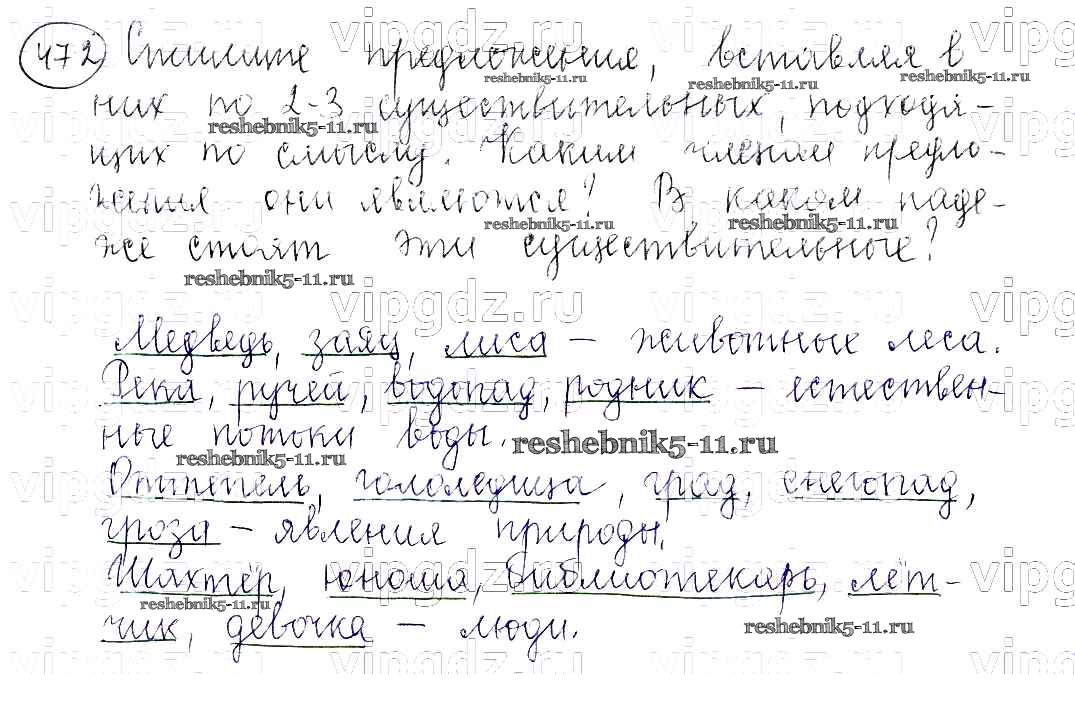 472 Спишите предложения, вставляя в
них по 2-3 существительных, подходя-
щих по смыслу. Каким членом предло-
жения они являются? В каком паде-
же стоят эти существительные?
Медведь, заяц, лиса – животные леса.
Река, ручей, водопад, родник – естествен-
ные потоки воды.
Оттепель, гололедица, град, снегопад,
гроза – явления природы.
Шахтёр, юноша, библиотекарь, лёт-
чик, девочка – люди.
vipgdz.ru
reshebnik5-11.ru